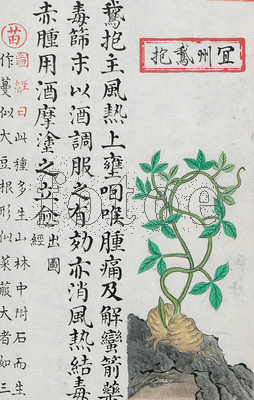 冝州鵞抱
鵞抱主風熱上壅咽喉腫痛及解蠻箭藥
毒篩末以酒調服之有効亦消風熱結毒
赤腫用酒摩塗之立愈出圖經
苗圖經曰此種多生山林中附石而生
作蔓似大豆根形似萊菔大者如三